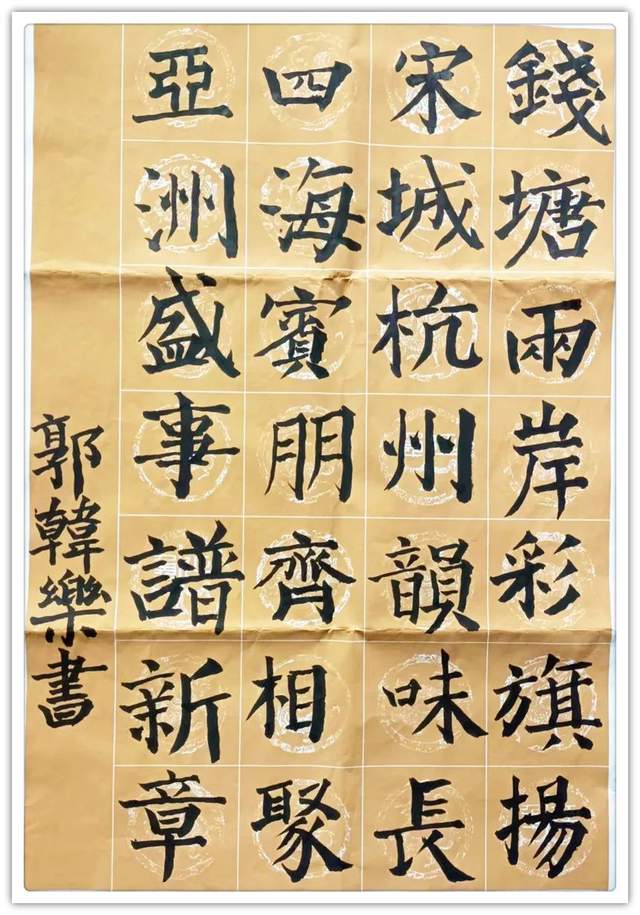 錢塘兩岸彩旗揚
宋城杭州韻味長
四海賓朋齊相聚
亞洲盛事譜新章
郭韓樂書